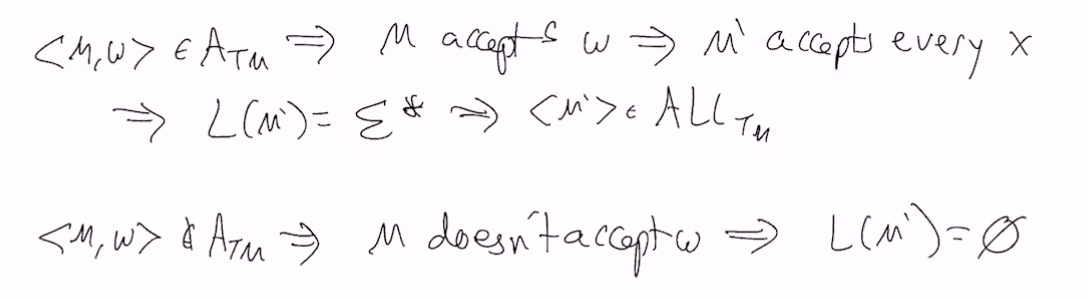 <M,w> ∈ A_TM ⇒ M accepts w ⇒ M' accepts every x
⇒ L(M') = Σ* ⇒ <M'> ∈ ALL_TM
<M,w> ∉ A_TM ⇒ M doesn't accept w ⇒ L(M') = ∅